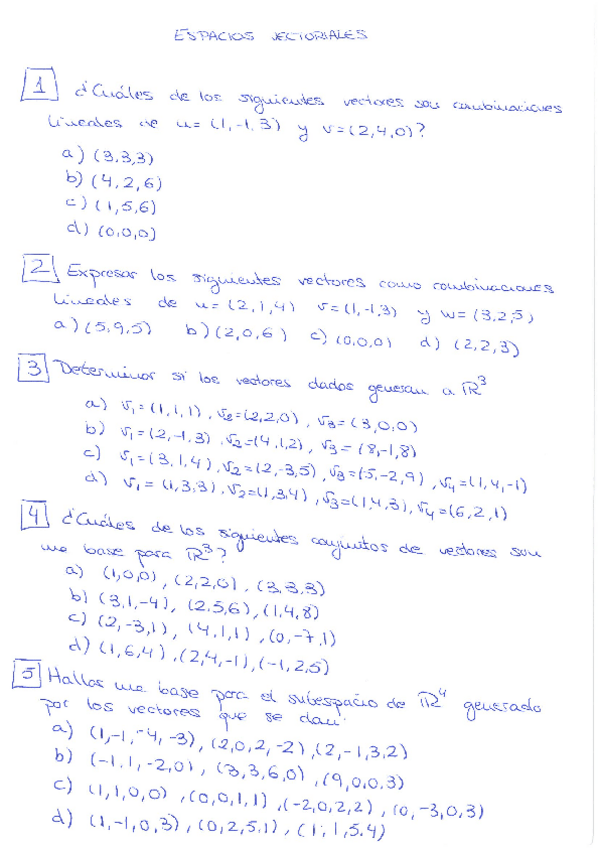 ESPACIOS VECTORIALES
1 ¿Cuáles de los siguientes vectores son combinaciones
lineales de u=(1,-1,3) y v=(2,4,0)?
a) (3,3,3)
b) (4,2,6)
c) (1,5,6)
d) (0,0,0)
2 Expresar los siguientes vectores como combinaciones
lineales de u=(2,1,4) v=(1,-1,3) y w=(3,2,5)
a) (5,9,5) b) (2,0,6) c) (0,0,0) d) (2,2,3)
3 Determinar si los vectores dados generan a R³
a) v₁=(1,1,1), v₂=(2,2,0), v₃=(3,0,0)
b) v₁=(2,-1,3), v₂=(4,1,2), v₃=(8,-1,8)
c) v₁=(3,1,4), v₂=(2,-3,5), v₃=(5,-2,9), v₄=(1,4,-1)
d) v₁=(1,3,3), v₂=(1,3,4), v₃=(1,4,3), v₄=(6,2,1)
4 ¿Cuáles de los siguientes conjuntos de vectores son
una base para R³?
a) (1,0,0), (2,2,0), (3,3,3)
b) (3,1,-4), (2,5,6), (1,4,8)
c) (2,-3,1), (4,1,1), (0,-7,1)
d) (1,6,4), (2,4,-1), (-1,2,5)
5 Hallar una base para el subespacio de R⁴ generado
por los vectores que se dan:
a) (1,-1,-4,-3), (2,0,2,-2), (2,-1,3,2)
b) (-1,1,-2,0), (3,3,6,0), (9,0,0,3)
c) (1,1,0,0), (0,0,1,1), (-2,0,2,2), (0,-3,0,3)
d) (1,-1,0,3), (0,2,5,1), (1,1,5,4)